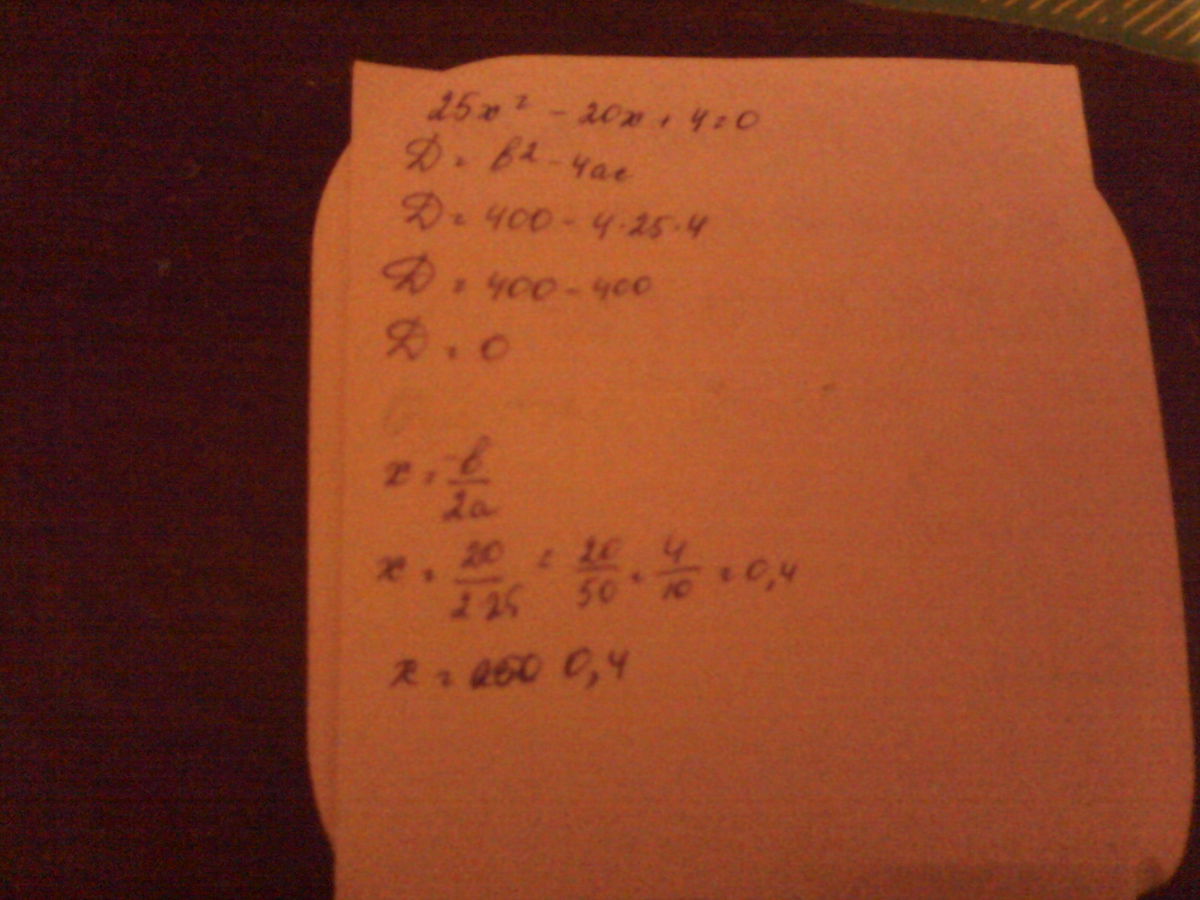 25x² - 20x + 4 = 0
D = b² - 4ac
D = 400 - 4·25·4
D = 400 - 400
D = 0
x = -b/2a
x = 20/2·25 = 20/50 = 4/10 = 0,4
x = 0,4